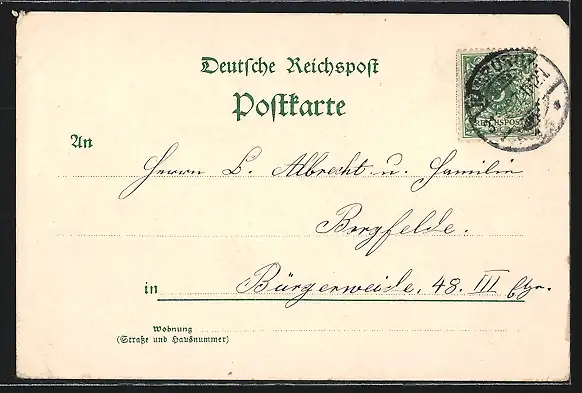 Deutsche Reichspost
Postkarte
An
Herrn L. Albrecht u. Familie
Borgfelde.
in Bürgerweide, 48. III Etg.
Wohnung
(Straße und Hausnummer)
REICHSPOST